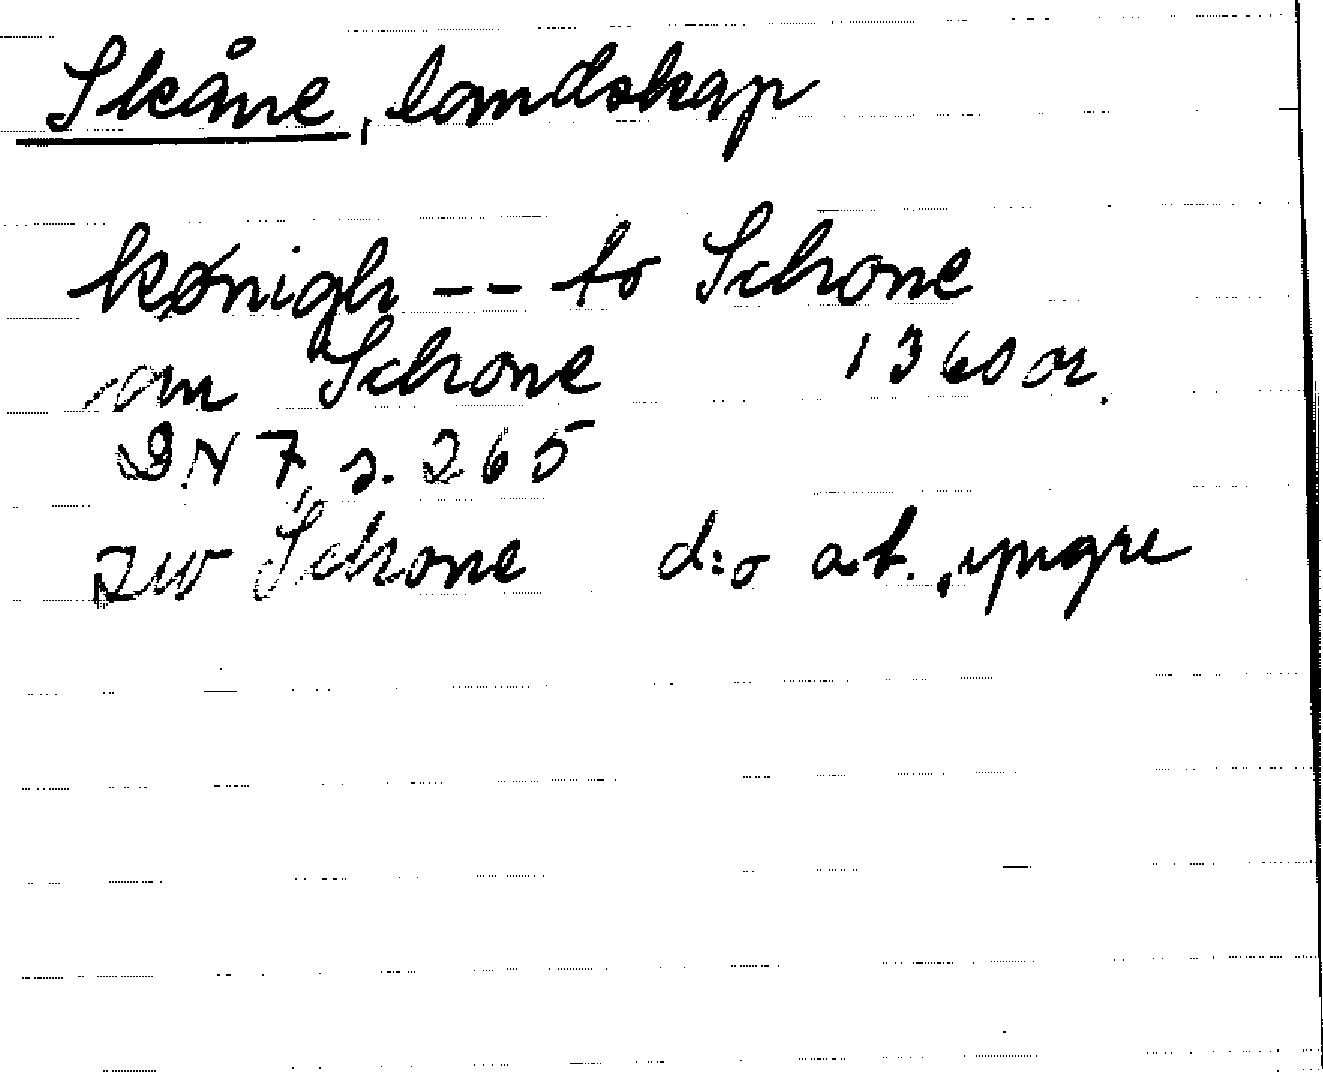 Skåne, landskap
kønigh -- to Schone
an Schone 1360 or.
DN 7 s. 265
zw Schone d:o at., yngre